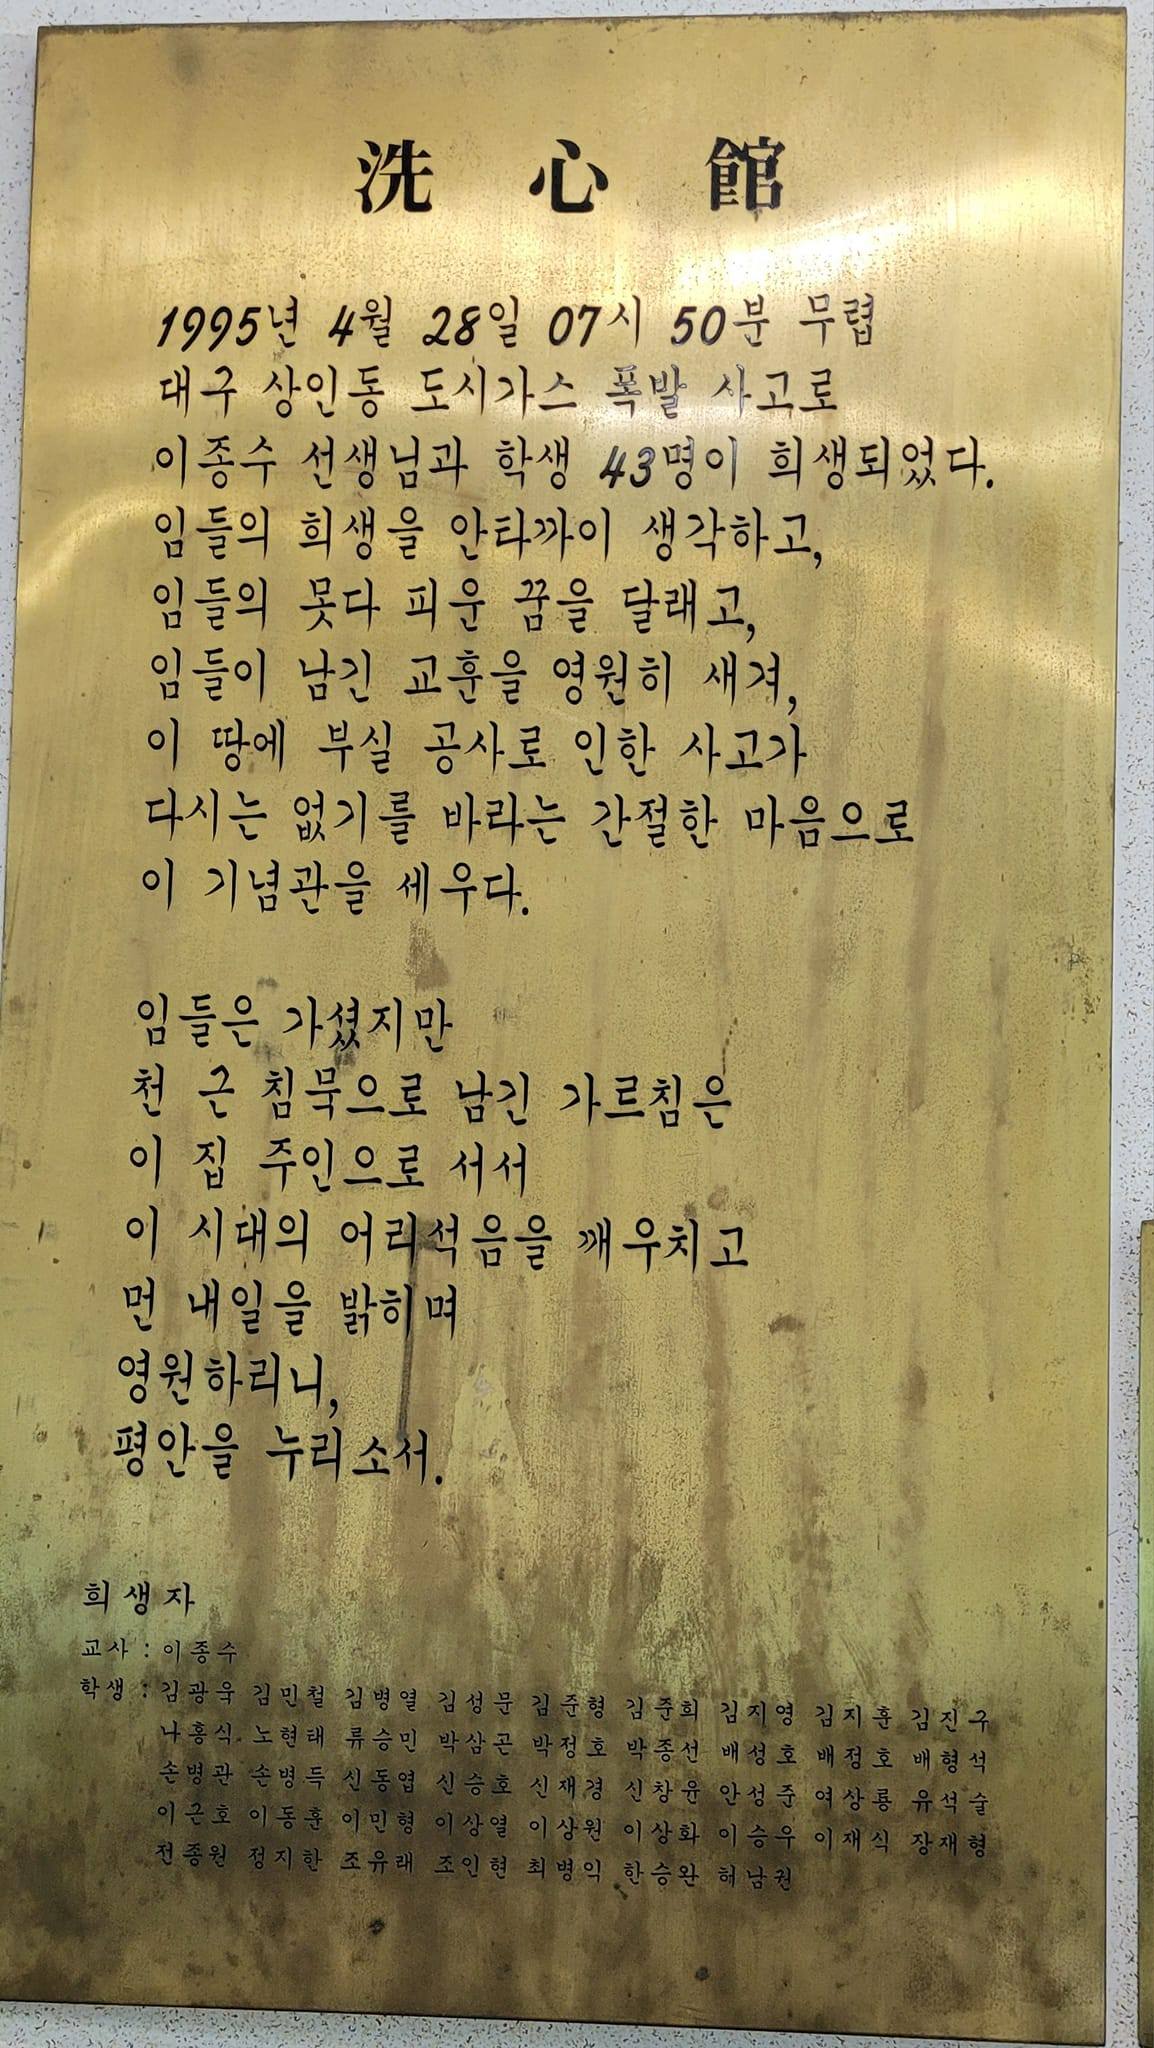 洗 心 館
1995년 4월 28일 07시 50분 무렵
대구 상인동 도시가스 폭발 사고로
이종수 선생님과 학생 43명이 희생되었다.
임들의 희생을 안타까이 생각하고,
임들의 못다 피운 꿈을 달래고,
임들이 남긴 교훈을 영원히 새겨,
이 땅에 부실 공사로 인한 사고가
다시는 없기를 바라는 간절한 마음으로
이 기념관을 세우다.
임들은 가셨지만
천 근 침묵으로 남긴 가르침은
이 집 주인으로 서서
이 시대의 어리석음을 깨우치고
먼 내일을 밝히며
영원하리니,
평안을 누리소서.
희생자
교사 : 이종수
학생 : 김광욱 김민철 김병열 김성문 김준형 김준희 김지영 김지훈 김진구
나홍식 노현태 류승민 박삼곤 박정호 박종선 배성호 배정호 배형석
손병관 손병득 신동엽 신승호 신재경 신창윤 안성준 여상룡 유석술
이근호 이동훈 이민형 이상열 이상원 이상화 이승우 이재식 장재형
전종원 정지한 조유래 조인현 최병익 한승완 해남권